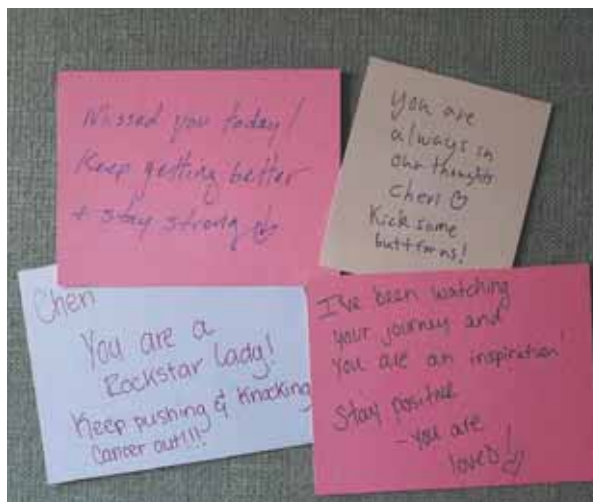 Missed you today!
Keep getting better
+ stay strong
You are
always in
our thoughts
Cheri
Kick some
butt for us!
Cheri
You are a
Rockstar lady!
Keep pushing & knocking
Cancer out!!!
I've been watching
your journey and
you are an inspiration!
Stay positive
- you are
loved!